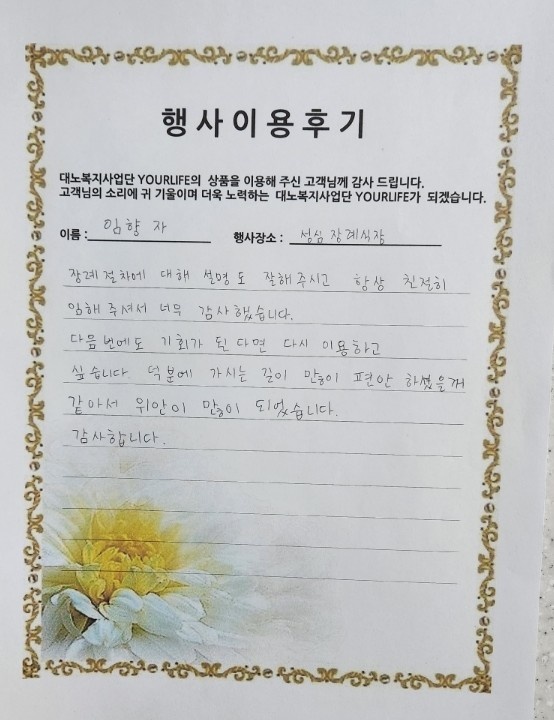 행사이용후기
대노복지사업단 YOURLIFE의 상품을 이용해 주신 고객님께 감사 드립니다.
고객님의 소리에 귀 기울이며 더욱 노력하는 대노복지사업단 YOURLIFE가 되겠습니다.
이름 : 임향자 행사장소 : 성심장례식장
장례절차에 대해 설명도 잘해주시고 항상 친절히
임해주셔서 너무 감사했습니다.
다음번에도 기회가 된다면 다시 이용하고
싶습니다. 덕분에 가시는 길이 많이 편안하셨을꺼
같아서 위안이 많이 되었습니다.
감사합니다.